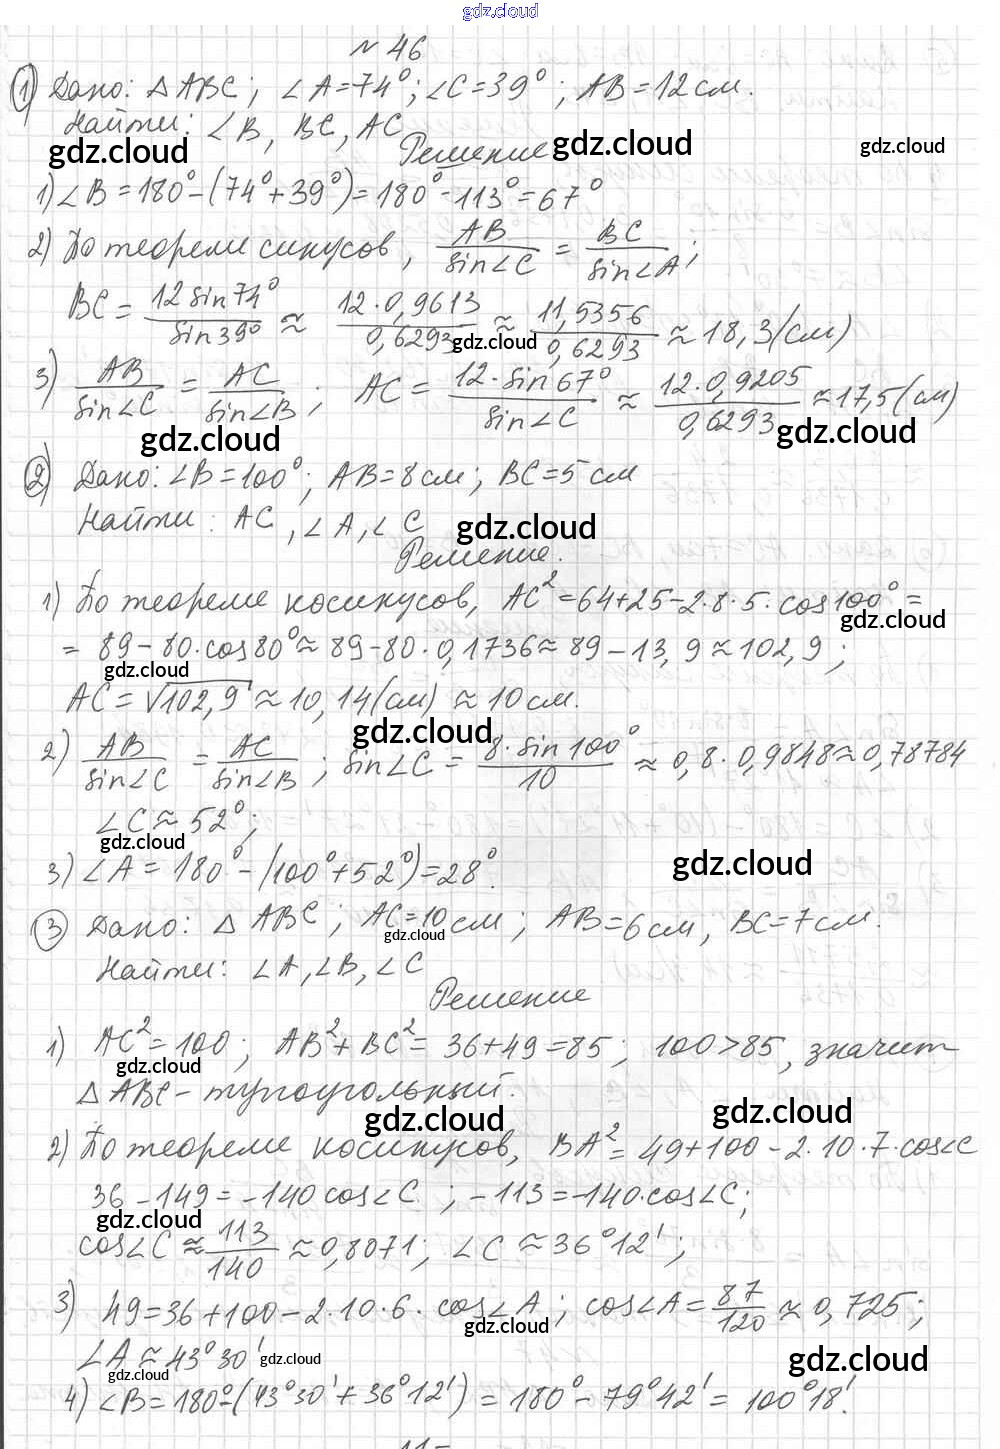 gdz.cloud
№ 46
① Дано: △ ABC; ∠A=74°; ∠C=39°; AB=12 см.
Найти: ∠B, BC, AC
gdz.cloud Решение gdz.cloud gdz.cloud
1) ∠B = 180° - (74° + 39°) = 180° - 113° = 67°
2) По теореме синусов, AB/sin∠C = BC/sin∠A;
BC = 12 sin 74°/sin 39° ≈ 12·0,9613/0,6293 ≈ 11,5356/0,6293 ≈ 18,3 (см)
gdz.cloud
3) AB/sin∠C = AC/sin∠B; AC = 12·sin 67°/sin∠C ≈ 12·0,9205/0,6293 ≈ 17,5 (см)
gdz.cloud gdz.cloud
② Дано: ∠B=100°; AB=8 см; BC=5 см
Найти: AC, ∠A, ∠C gdz.cloud
Решение.
1) По теореме косинусов, AC² = 64+25-2·8·5·cos100° =
gdz.cloud
= 89-80·cos80° ≈ 89-80·0,1736 ≈ 89-13,9 ≈ 102,9;
gdz.cloud
AC = √102,9 ≈ 10,14 (см) ≈ 10 см.
gdz.cloud
2) AB/sin∠C = AC/sin∠B; sin∠C = 8·sin 100°/10 ≈ 0,8·0,9848 ≈ 0,78784
∠C ≈ 52°;
gdz.cloud
3) ∠A = 180° - (100°+52°) = 28°. gdz.cloud
③ Дано: △ ABC; AC=10 см; AB=6 см, BC=7 см.
gdz.cloud
Найти: ∠A, ∠B, ∠C
Решение
1) AC² = 100; AB² + BC² = 36+49=85; 100>85, значит
gdz.cloud
△ ABC - тупоугольный.
gdz.cloud gdz.cloud
2) По теореме косинусов, BA² = 49+100-2·10·7·cos∠C
36-149 = -140 cos∠C; -113 = -140·cos∠C;
gdz.cloud
cos∠C ≈ 113/140 ≈ 0,8071; ∠C ≈ 36°12';
3) 49=36+100-2·10·6·cos∠A; cos∠A = 87/120 ≈ 0,725;
gdz.cloud
∠A ≈ 43°30' gdz.cloud gdz.cloud
gdz.cloud
4) ∠B = 180° - (43°30' + 36°12') = 180° - 79°42' = 100°18'.